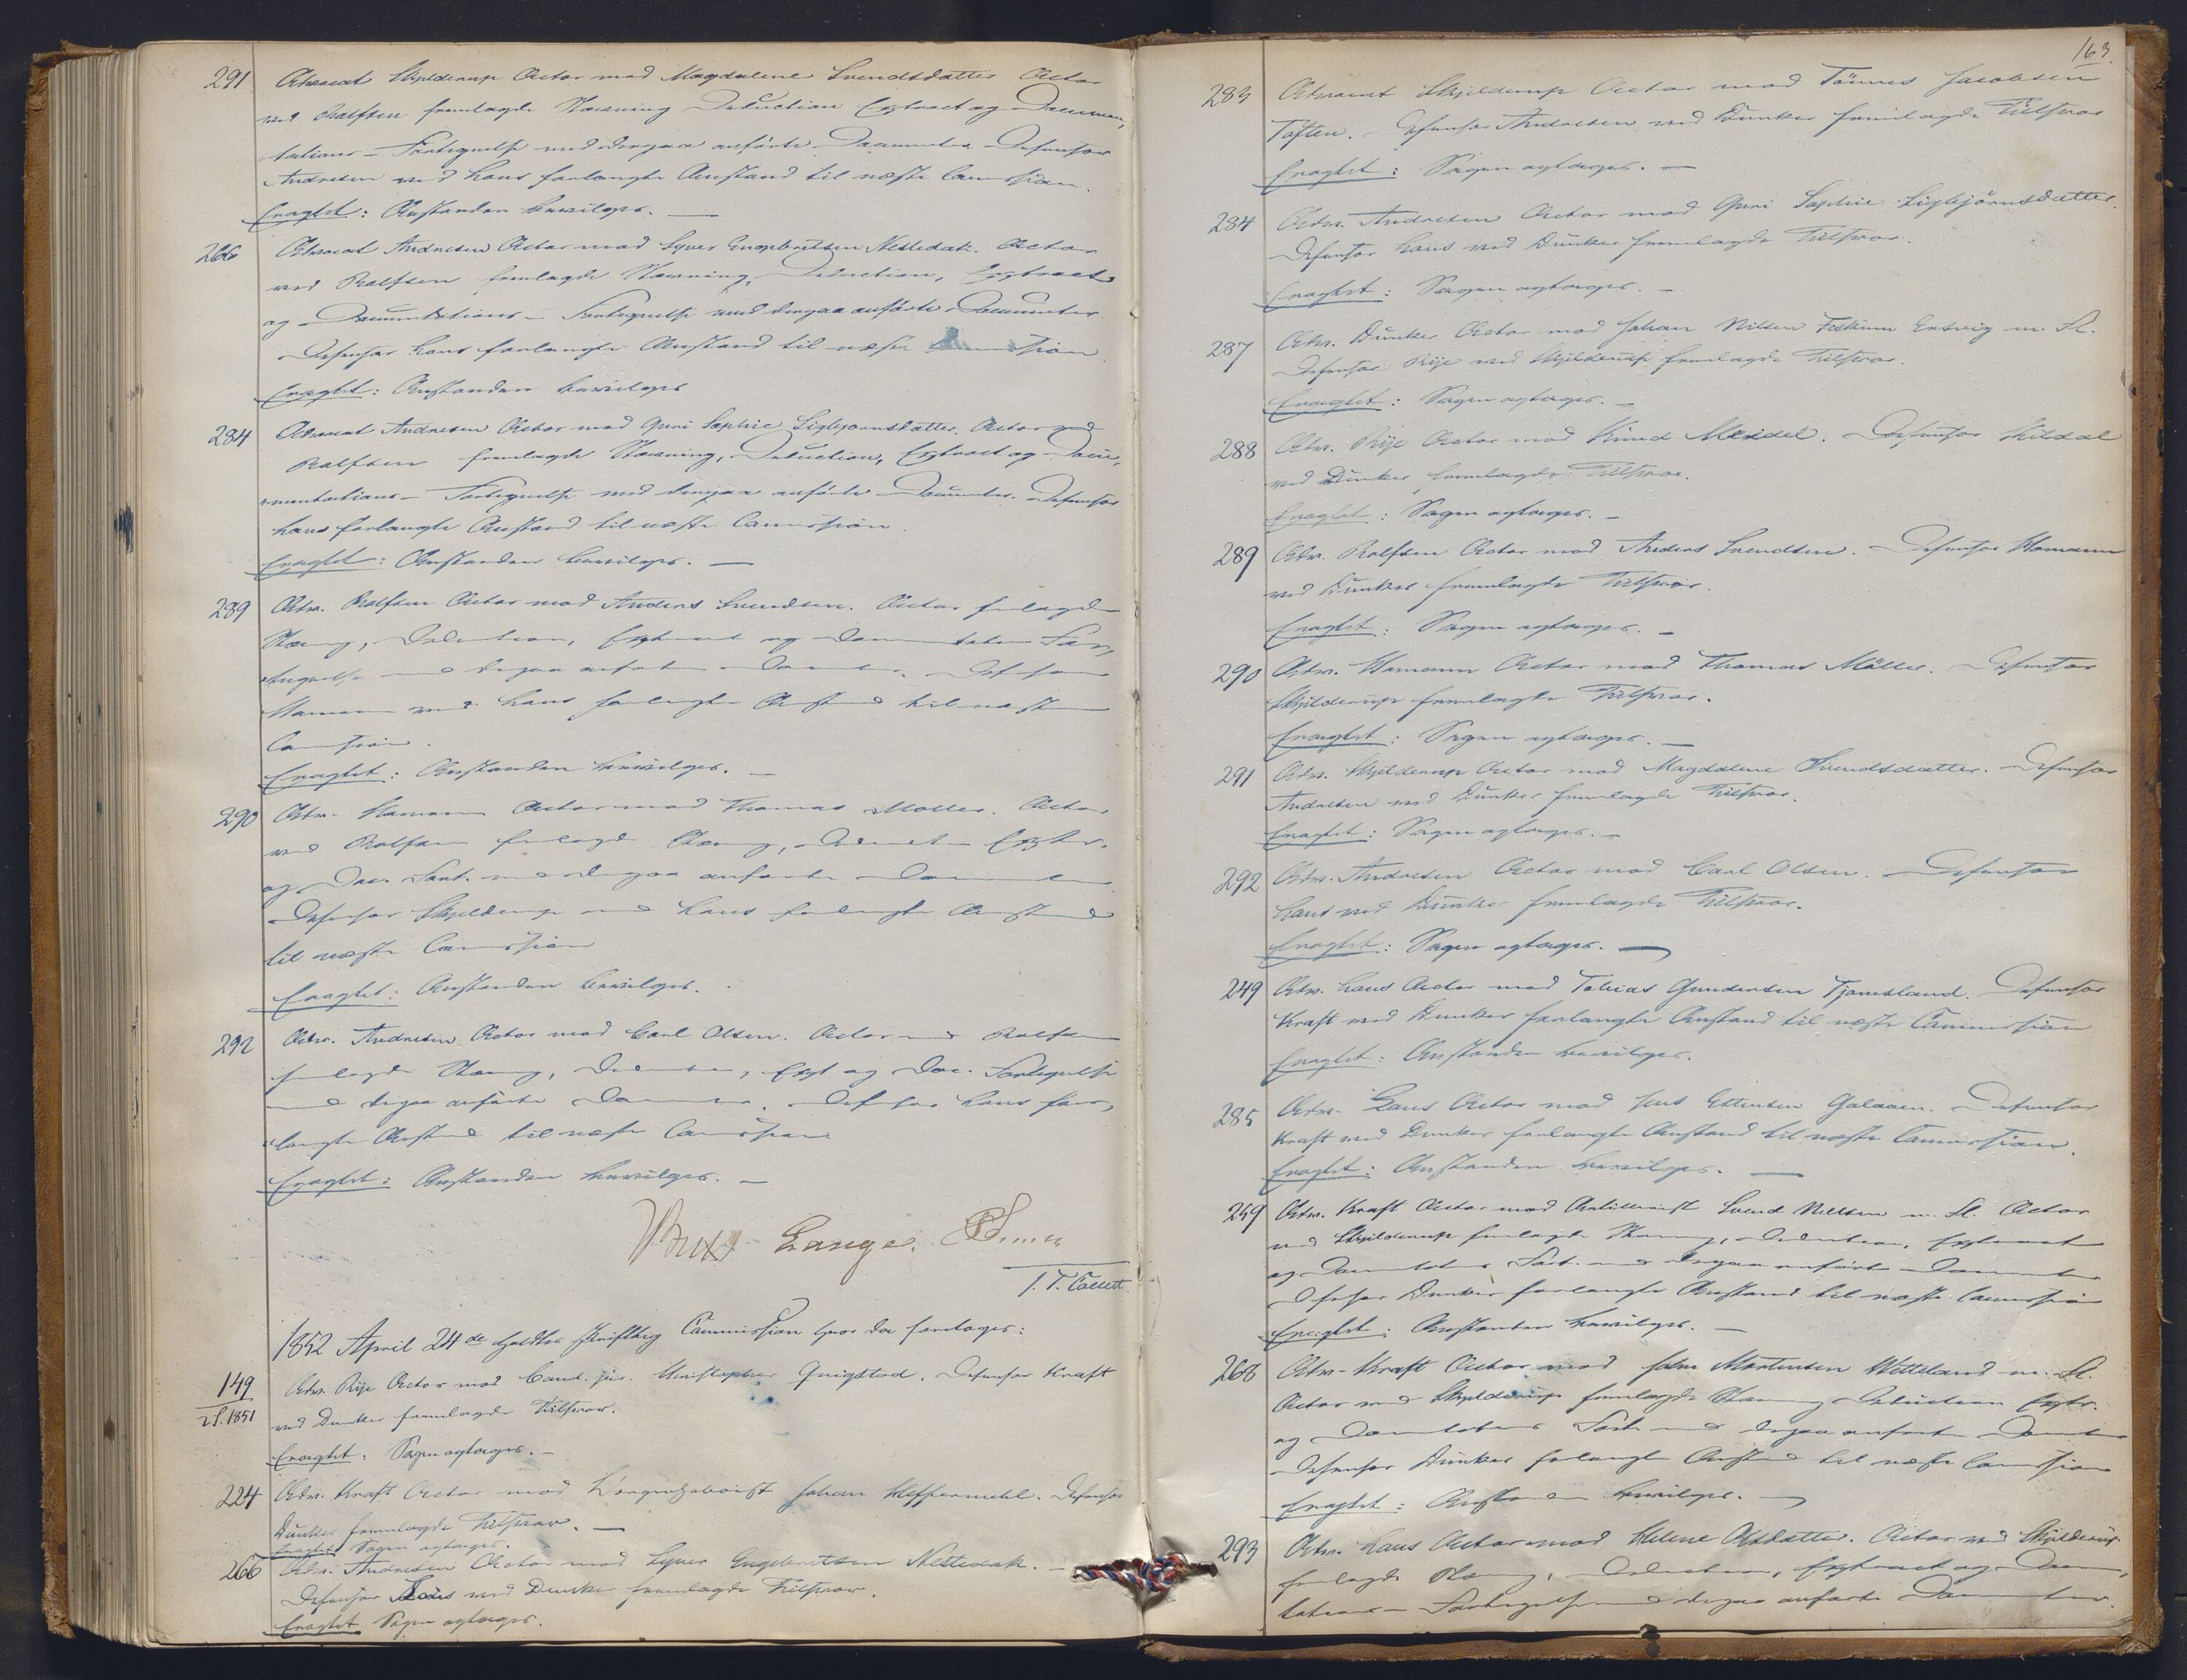 291 Advocat Skjelderup Actor mod Magdalene Svendsdatter Actor
ved Rolfsen fremlagde Stævning Deduction Extract og Documen,
tations-Fortegnelse med derpaa anførte Documenter. Defensor
Andresen ved Hans forlangte Anstand til næste Commission.
Eragtet: Anstanden bevilges. —
266 Advocat Andresen Actor mod Syver Engebretsen Nessedak. Actor
ved Rolfsen fremlagde Stævning, Deduction, Extract
og Documentations-Fortegnelse med derpaa anførte Documenter.
Defensor Hans forlangte Anstand til næste Commission
Eragtet: Anstanden bevilges
284 Advocat Andresen Actor mod Guri Sophie Sigbjørnsdatter. Actor ved
Rolfsen fremlagde Stævning, Deduction, Extract og Docu,
mentations-Fortegnelse med derpaa anførte Documenter. Defensor
Hans forlangte Anstand til næste Commission.
Eragtet: Anstanden bevilges. —
289 Adv. Rolfsen Actor mod Anders Svendsen. Actor fremlagde
Stævning, Deduction, Extract og Documentations For,
tegnelse med derpaa anførte Documenter. Defensor
Homann ved Hans forlangte Anstand til næste
Commission.
Eragtet: Anstanden bevilges. —
290 Adv. Homann Actor mod Thomas Møller. Actor
ved Rolfsen fremlagde Stævning, Deduction Extr.
og Doc. Fort. med derpaa anførte Documenter
Defensor Skjelderup ved Hans forlangte Anstand
til næste Commission
Eragtet: Anstanden bevilges.
292 Adv. Andresen Actor mod Carl Olsen. Actor ved Rolfsen
fremlagde Stævning, Deduction, Ext og Doc. Fortegnelse
med derpaa anførte Documenter. Defensor Hans for,
langte Anstand til næste Commission
Eragtet: Anstanden bevilges. —
Lange.
T. T. Collett.
1852 April 24de holdtes skriftlig Commission hvor da foretoges:
149
2 S. 1851
Adv. Rije Actor mod Cand. jur. Christopher Quigstad. Defensor Kraft
ved Dunker fremlagde Tilsvar.
Eragtet: Sagen optages. —
224 Adv. Kraft Actor mod Johan Heffermehl. Defensor
Dunker fremlagde Tilsvar. —
Eragtet: Sagen optages.
266 Adv. Andresen Actor mod Syver Engebretsen Nessedak. —
Defensor Hans ved Dunker fremlagde Tilsvar.
Eragtet Sagen optages.
163.
283 Advocat Skjelderup Actor mod Tönnes Jacobsen
Töften. Defensor Andresen ved Dunker fremlagde Tilsvar
Eragtet: Sagen optages. —
284 Adv. Andresen Actor mod Guri Sophie Sigbjörnsdatter.
Defensor Hans ved Dunker fremlagde Tilsvar.
Eragtet: Sagen optages. —
287 Adv. Dunker Actor mod Johan Nilsen m. Fl.
Defensor Rije ved Skjelderup fremlagde Tilsvar.
Eragtet: Sagen optages. —
288 Adv. Rije Actor mod Knud Meidel. Defensor Kildal
ved Dunker fremlagde Tilsvar.
Eragtet: Sagen optages. —
289 Adv. Rolfsen Actor mod Anders Svendsen. Defensor Homann
ved Dunker fremlagde Tilsvar.
Eragtet: Sagen optages. —
290 Adv. Homann Actor mod Thomas Möller. Defensor
Skjelderup fremlagde Tilsvar.
Eragtet: Sagen optages. —
291 Adv. Skjelderup Actor mod Magdalene Svendsdatter. Defensor
Andresen ved Dunker fremlagde Tilsvar.
Eragtet: Sagen optages. —
292 Adv. Andresen Actor mod Carl Olsen. Defensor
Hans ved Dunker fremlagde Tilsvar.
Eragtet: Sagen optages. —
249 Adv. Hans Actor mod Tobias Gundersen Tjomsland. Defensor
Kraft ved Dunker forlangte Anstand til næste Commission
Eragtet: Anstanden bevilges.
285 Adv. Hans Actor mod Jens Ellensen Galaaen. Defensor
Kraft ved Dunker forlangte Anstand til næste Commission.
Eragtet: Anstanden bevilges. —
259 Adv. Kraft Actor mod Artillerist Svend Nilsen m. Fl. Actor
ved Skjelderup fremlagde Stævning, Deduction, Extract
og Documentations Fort. med derpaa anførte Documenter
Defensor Dunker forlangte Anstand til næste Commission
Eragtet: Anstanden bevilges. —
268 Adv. Kraft Actor mod John Mortensen Wetteland m. Fl.
Actor ved Skjelderup fremlagde Stævning Deduction Extr.
og Documentations Fort. med derpaa anførte Documenter
Defensor Dunker forlangte Anstand til næste Commission
Eragtet: Anstanden bevilges. —
293 Adv. Hans Actor mod Helene Olsdatter. Actor ved Skjelderup
fremlagde Stævning, Deduction, Extract og Docum,
tations-Fortegnelse med derpaa anførte Documenter.